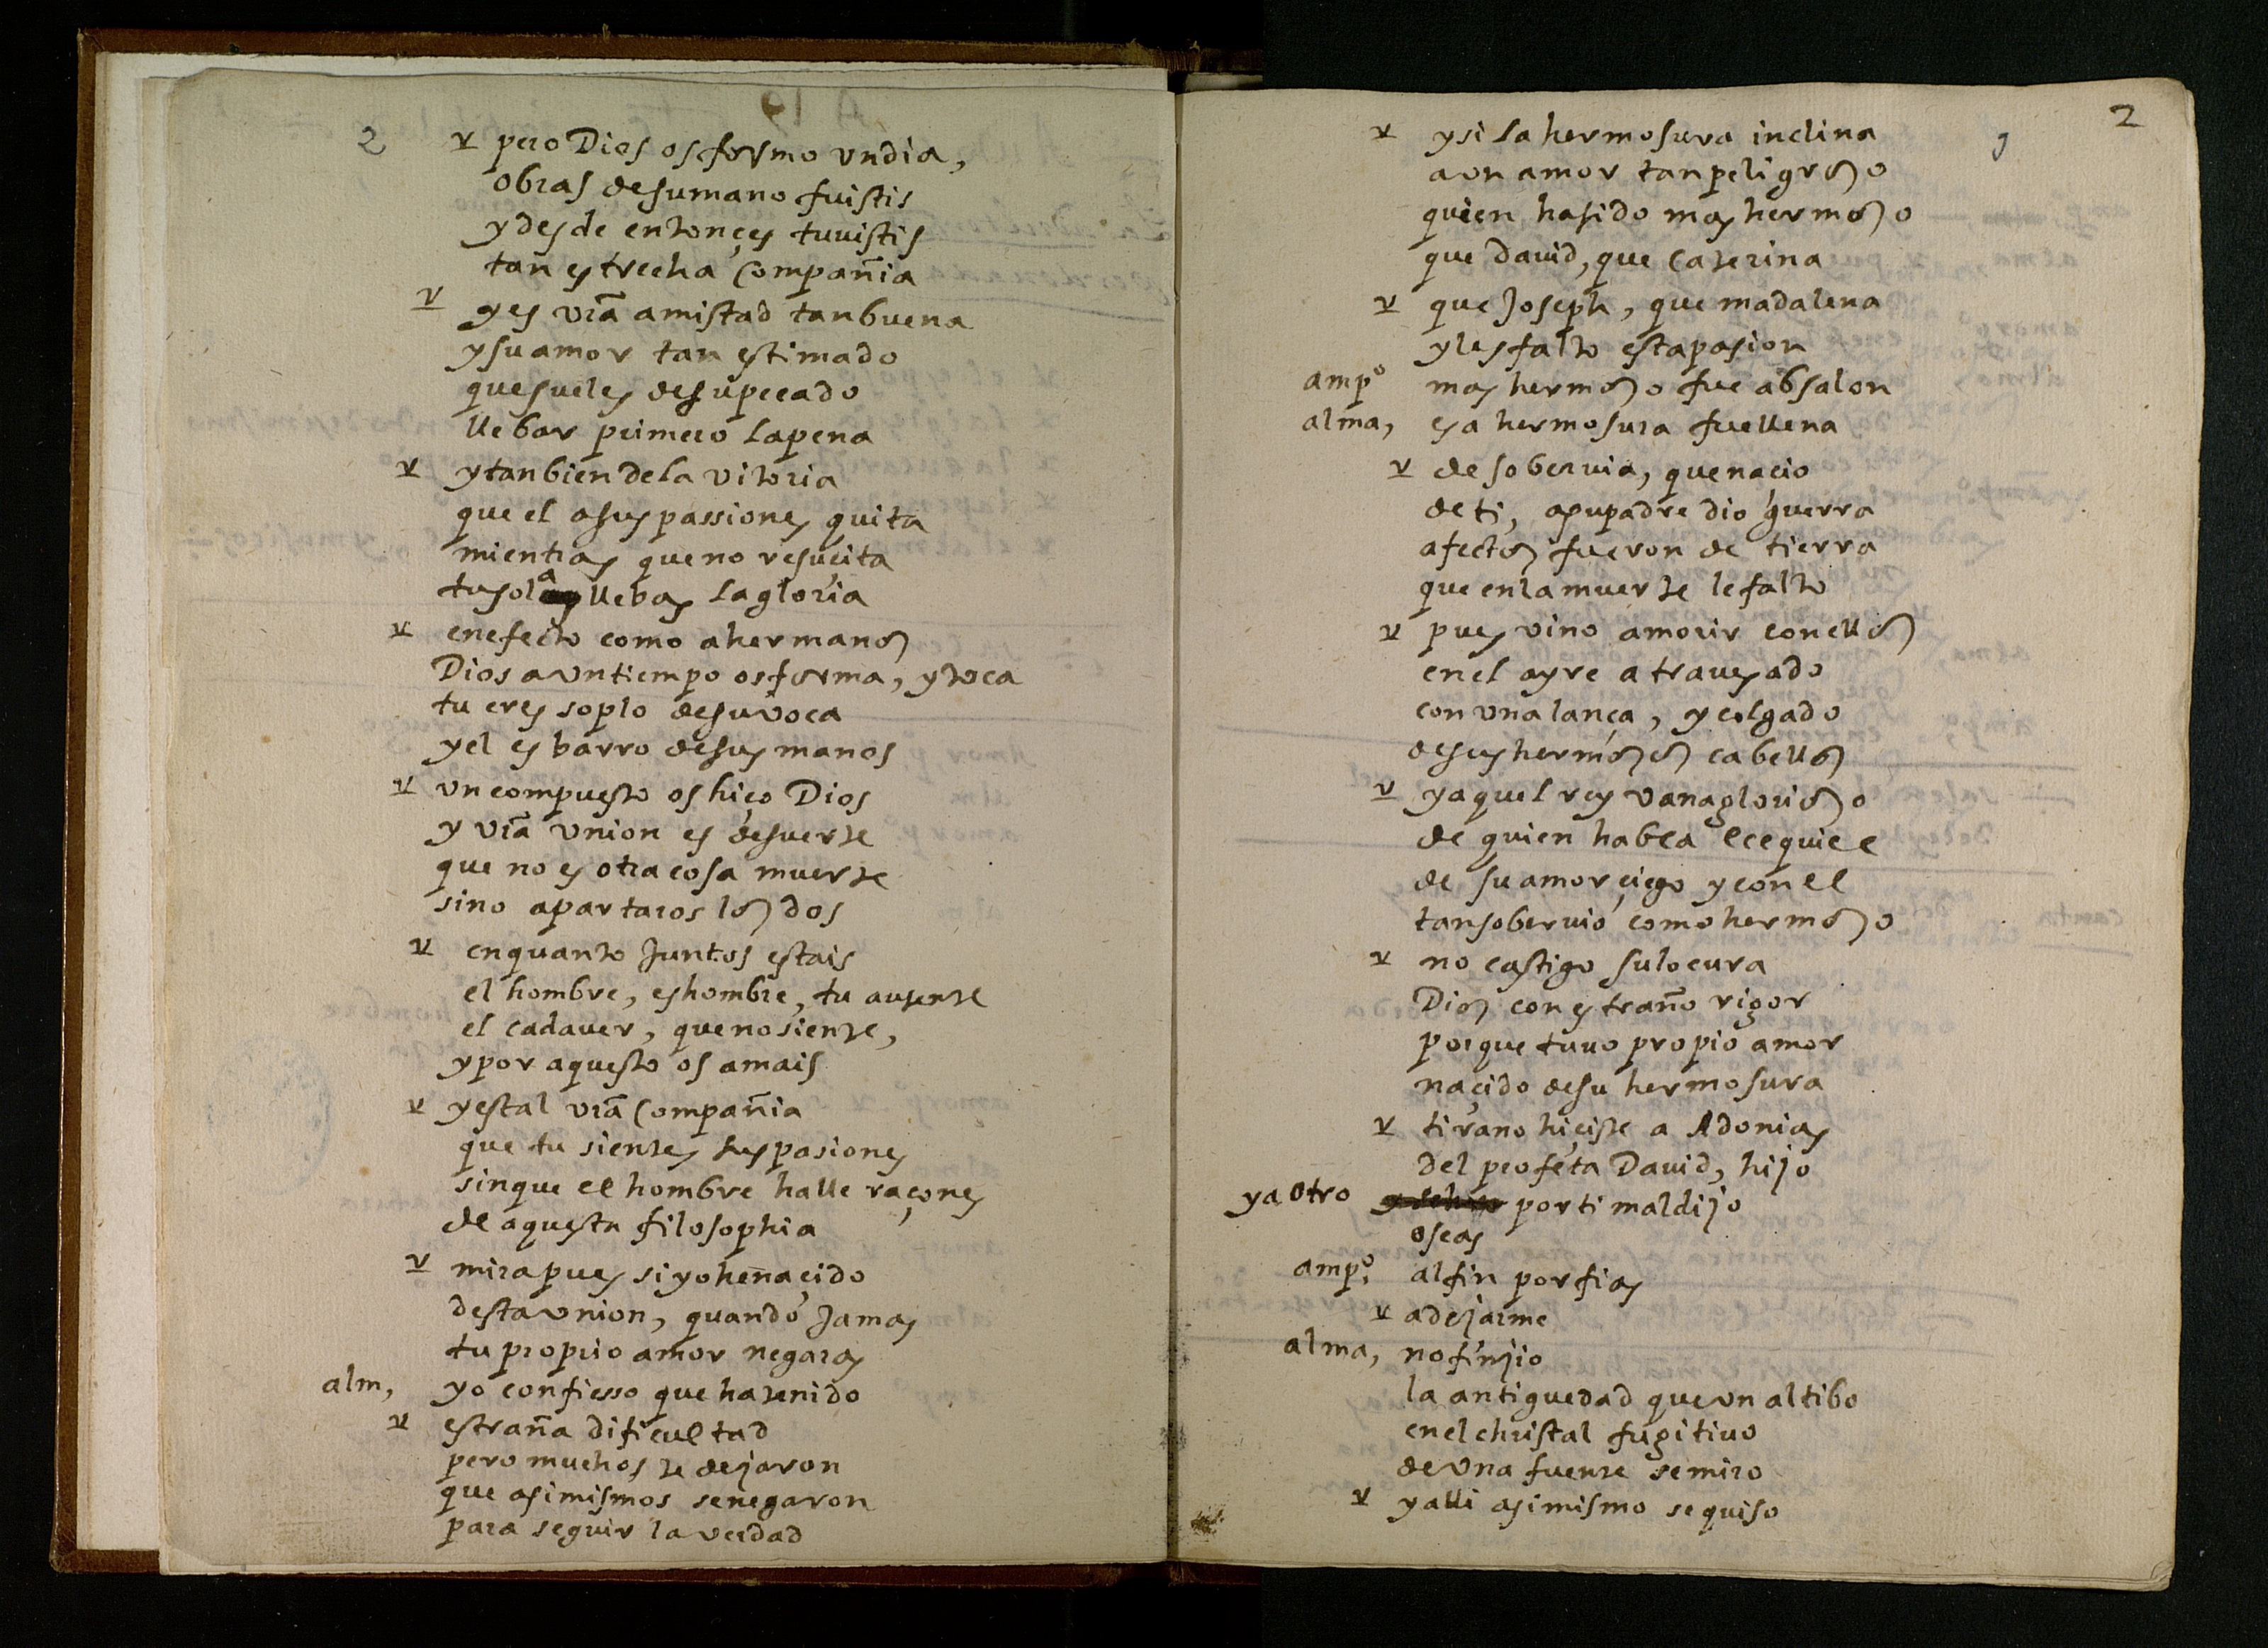 2
v pero Dios os formo vn dia,
obras de su mano fuistis
y desde entonçes tuuistis
tan estrecha compañia
v y es vrã amistad tan buena
y su amor tan estimado
que sueles de su pecado
llebar primero la pena
v y tanbien de la vitoria
que el a sus passiones quita
mientras que no resuçita
tu sola llebas la gloria
v en efecto como a hermanos
Dios a vn tiempo os forma, y toca
tu eres soplo de su voca
y el es barro de sus manos
v vn compuesto os hiço Dios
y vrã vnion es de suerte
que no es otra cosa muerte
sino apartaros los dos
v en quanto Juntos estais
el hombre, es hombre, tu ausente
el cadauer, que no siente,
y por aquesto os amais
v y es tal vrã Compañia
que tu sientes sus pasiones
sin que el hombre halle raçones
de aquesta filosophia
v mira pues si yo he naçido
desta vnion, quando Jamas
tu proprio amor negaras
alm, yo confiesso que ha tenido
v estraña dificultad
pero muchos te dejaron
que asi mismos se negaron
para seguir la verdad
2
v y si la hermosura inclina
a vn amor tan peligroso
quien ha sido mas hermoso
que Dauid, que Caterina
v que Joseph, que madalena
y les falto esta pasion
ampº mas hermoso fue absalon
alma, esa hermosura fue llena
v de soberuia, que naçio
de ti, a su padre dio guerra
afectos fueron de tierra
que en la muerte le falto
v pues vino a morir con ellos
en el ayre atrauesado
con vna lança, y colgado
de sus hermosos cabellos
v y aquel rey vanaglorioso
de quien habla Ecequiel
de su amor çiego y con el
tan soberuio como hermoso
v no castigo su locura
Dios con estraño rigor
porque tuuo propio amor
naçido de su hermosura
v tirano hiçiste a Adonias
del profeta Dauid, hijo
y a otro por ti maldijo
oseas
ampº, al fin porfias
v a dejarme
alma, no finjio
la antiguedad que vn altibo
en el christal fugitiuo
de vna fuente se miro
v y alli asi mismo se quiso